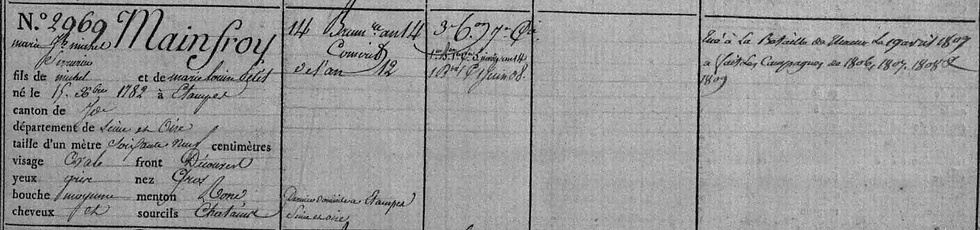 N.º 2969 Mainfroy
marie michel
fils de michel et de marie louise
né le 15. Xbre 1782 à Etampes
canton de
département de Seine et Oise
taille d'un mètre Soixante Neuf centimètres
visage Ovale front Découvert
yeux gris nez Gros
bouche moyenne menton Rond
cheveux et sourcils Chatains
14 Brum.re an 14
Conscrit
de l'an 12
Dernier domicile à Etampes
Seine et oise
Tué à La Bataille de Le 19 avril 1809
a fait Les Campagnes de 1806, 1807. 1808 &
1809